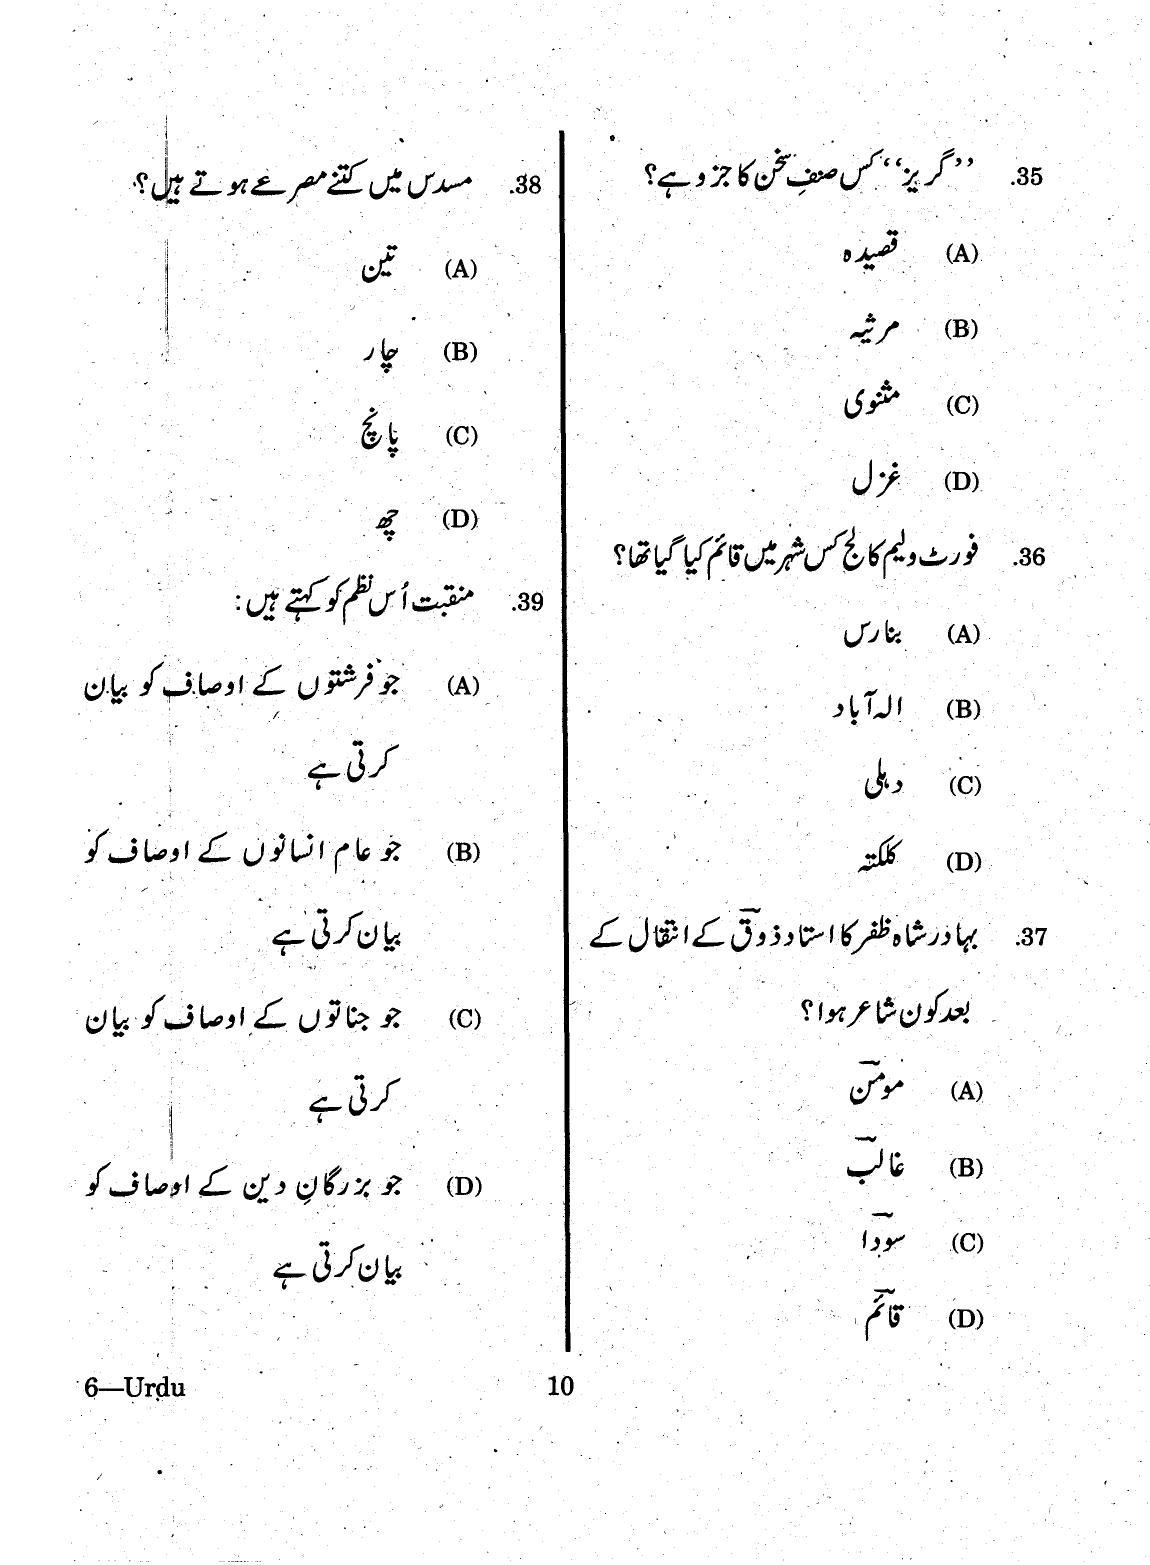 35. ’’گریز‘‘ کس صنفِ سخن کا جزو ہے؟
(A) قصیدہ
(B) مرثیہ
(C) مثنوی
(D) غزل
36. فورٹ ولیم کالج کس شہر میں قائم کیا گیا تھا؟
(A) بنارس
(B) الہ آباد
(C) دہلی
(D) کلکتہ
37. بہادر شاہ ظفر کا استاد ذوقؔ کے انتقال کے
بعد کون شاعر ہوا؟
(A) مومنؔ
(B) غالبؔ
(C) سوداؔ
(D) قائمؔ
38. مسدس میں کتنے مصرعے ہوتے ہیں؟
(A) تین
(B) چار
(C) پانچ
(D) چھ
39. منقبت اُس نظم کو کہتے ہیں:
(A) جو فرشتوں کے اوصاف کو بیان
کرتی ہے
(B) جو عام انسانوں کے اوصاف کو
بیان کرتی ہے
(C) جو جناتوں کے اوصاف کو بیان
کرتی ہے
(D) جو بزرگانِ دین کے اوصاف کو
بیان کرتی ہے
6—Urdu 10